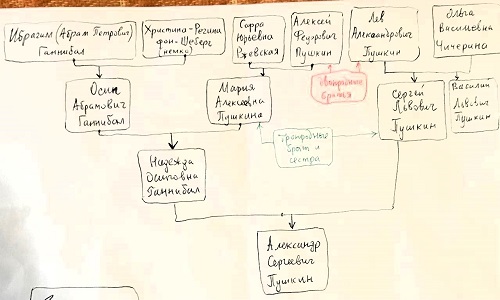 Ибрагим (Абрам Петрович)
Ганнибал
Христина-Регина
фон-Шеберг
(немка)
Сарра
Юрьевна
Ржевская
Алексей
Федорович
Пушкин
Лев
Александрович
Пушкин
Ольга
Васильевна
Чичерина
Двоюродные
братья
Осип
Абрамович
Ганнибал
Мария
Алексеевна
Пушкина
Сергей
Львович
Пушкин
Василий
Львович
Пушкин
Троюродные
брат и
сестра
Надежда
Осиповна
Ганнибал
Александр
Сергеевич
Пушкин